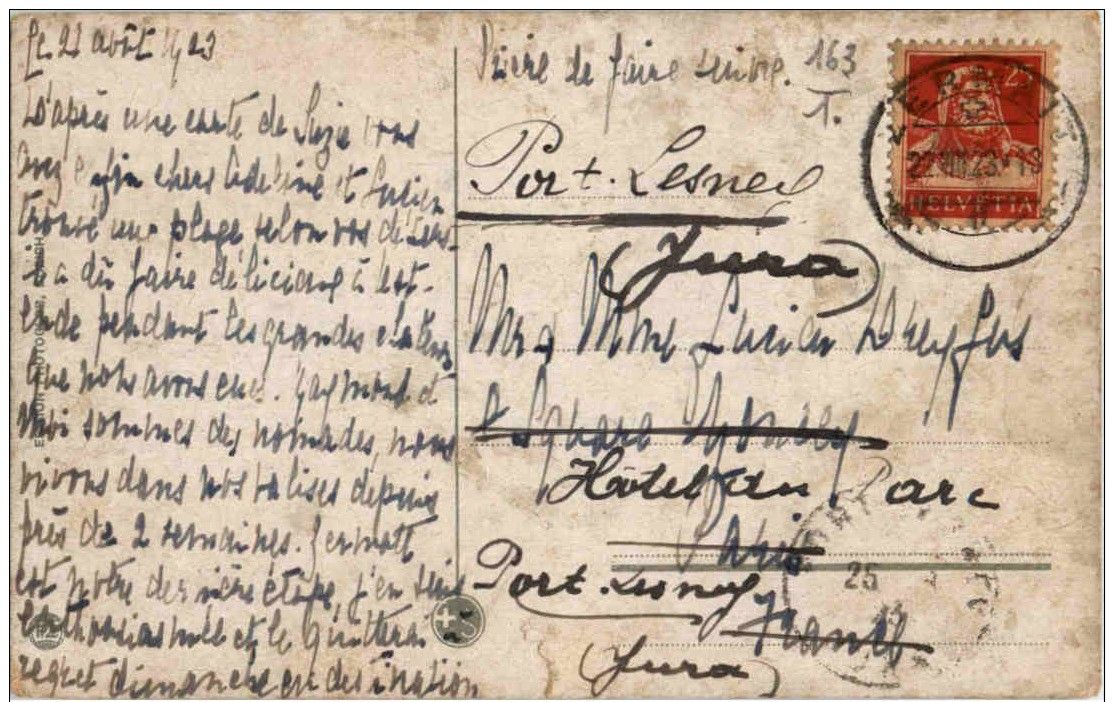 le 22 août 1923
D'après une carte de Suzie vous
avez enfin chers Adeline et Lucien
trouvé une plage selon vos désirs
il a dû faire délicieux à Ost-
ende pendant les grandes chaleurs
que nous avons eues. Raymond &
moi sommes des nomades, nous
vivons dans nos valises depuis
près de 2 semaines. Zermatt
est notre dernière étape, j'en suis
enthousiasmée et le quitterai
regret dimanche en destination
Prière de faire suivre.
163
T.
Port. Lesney
(Jura)
Mr & Mme Lucien Dreyfus
Square
Hôtel du Parc
Paris
Port. Lesney
France
(Jura)
25
HELVETIA
22.VIII.23
25